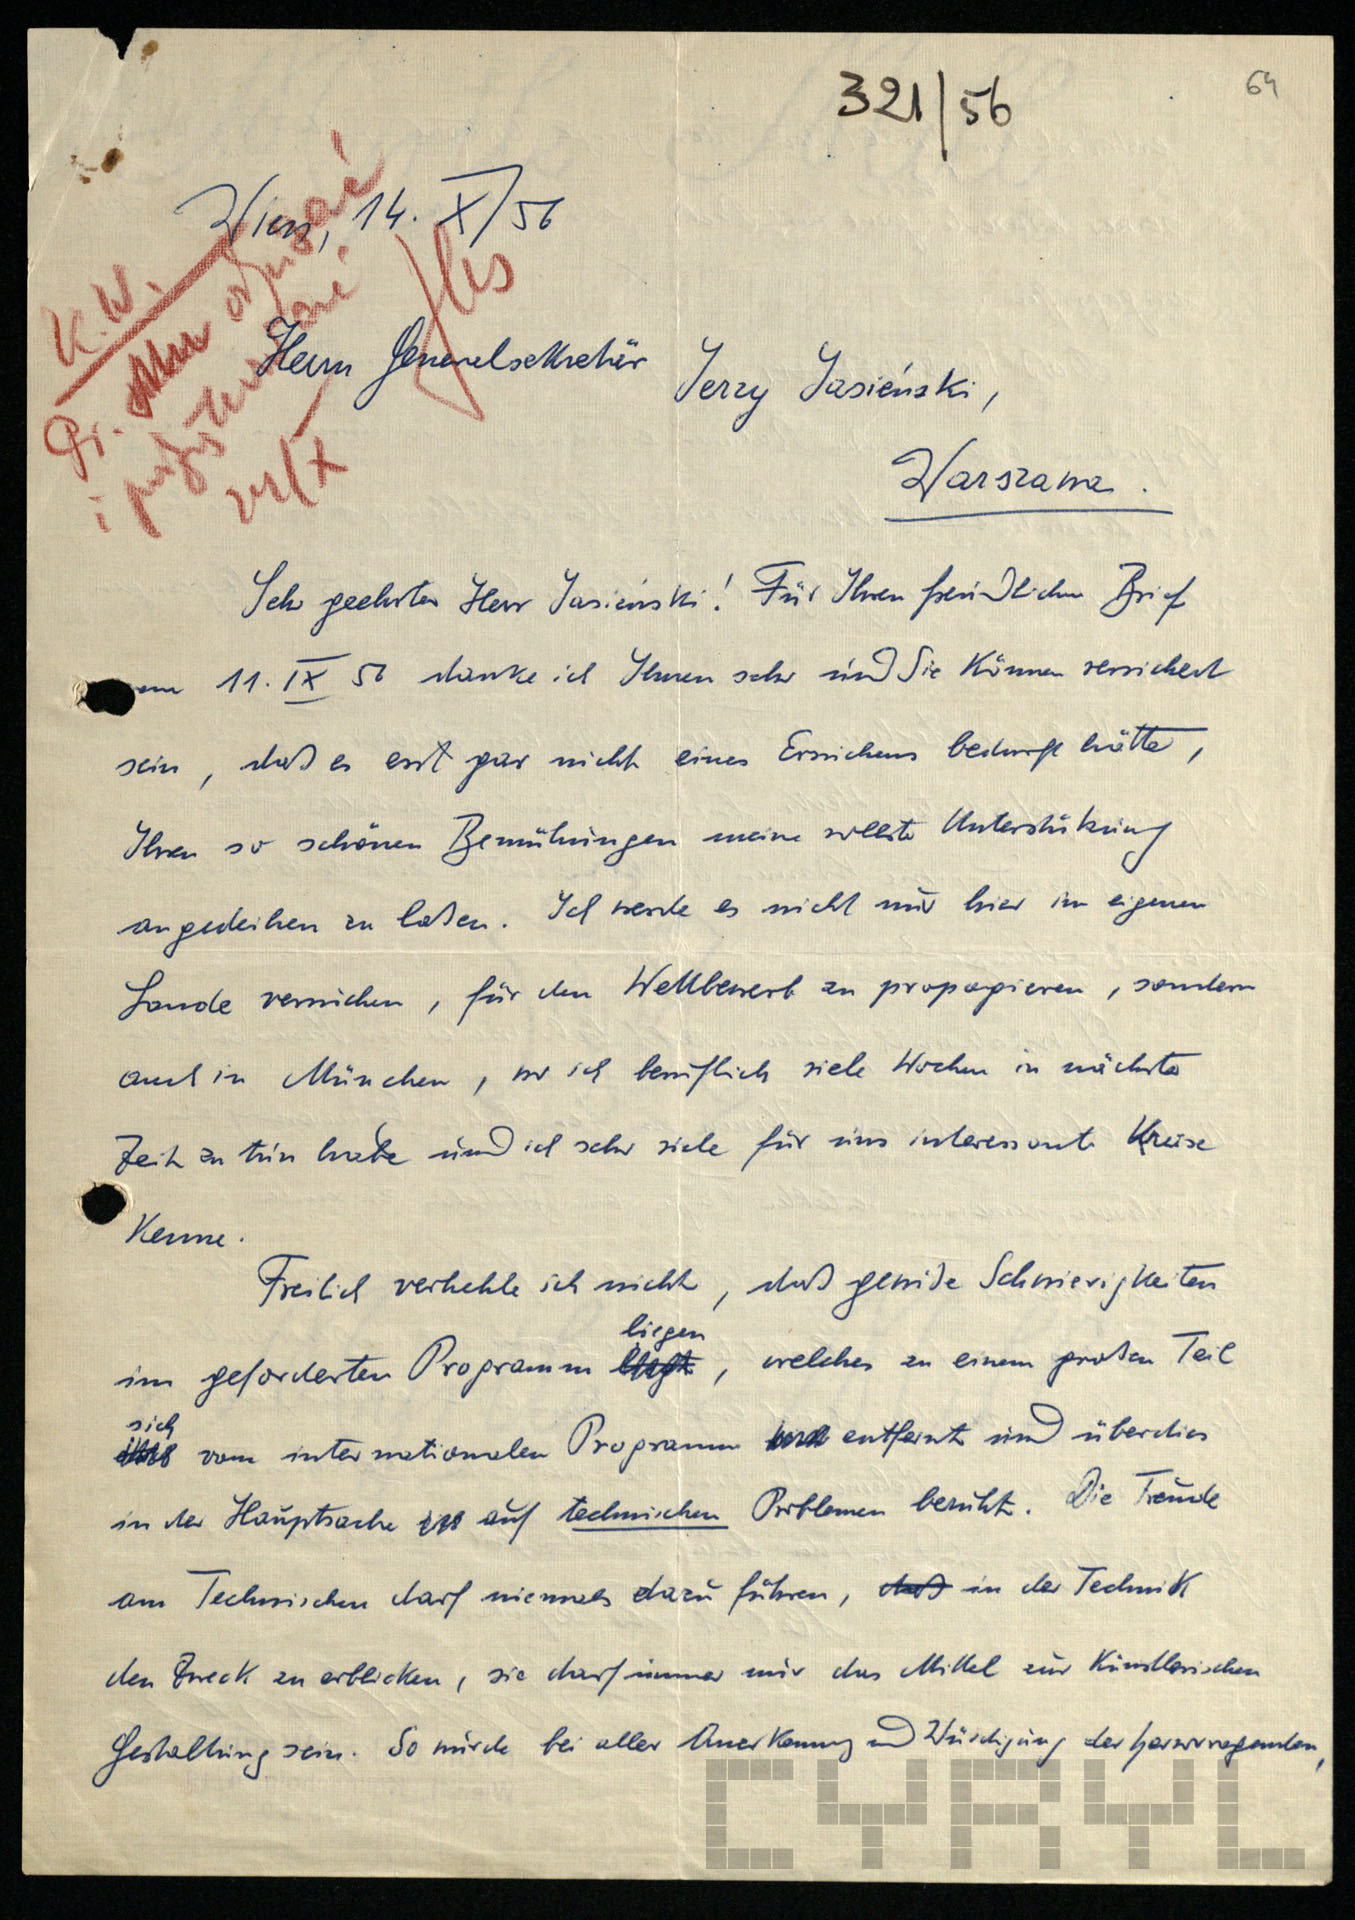 321/56
64
Wien, 14. X/56
K.W.
odpisać
i
22/X
Herrn Generalsekretär
Jerzy Jasieński,
Warszawa.
Sehr geehrter Herr Jasieński! Für Ihren freundlichen Brief
vom 11. IX 56 danke ich Ihnen sehr und Sie können versichert
sein, daß es erst gar nicht eines Ersuchens bedurft hätte,
Ihren so schönen Bemühungen meine vollste Unterstützung
angedeihen zu laßen. Ich werde es nicht nur hier im eigenen
Lande versuchen, für den Wettbewerb zu propagieren, sondern
auch in München, wo ich beruflich viele Wochen in nächster
Zeit zu tun habe und ich sehr viele für uns interessante Kreise
kenne.
Freilich verhehle ich nicht, daß gewiße Schwierigkeiten
liegen
im geforderten Programm, welches zu einem großen Teil
sich
vom internationalen Programm entfernt und überdies
in der Hauptsache auf technischen Problemen beruht. Die Freude
am Technischen darf niemals dazu führen, daß in der Technik
den Zweck zu erblicken, sie darf immer nur das Mittel zur künstlerischen
Gestaltung sein. So würde bei aller Anerkennung und Würdigung der hervorragenden,
CYRYL